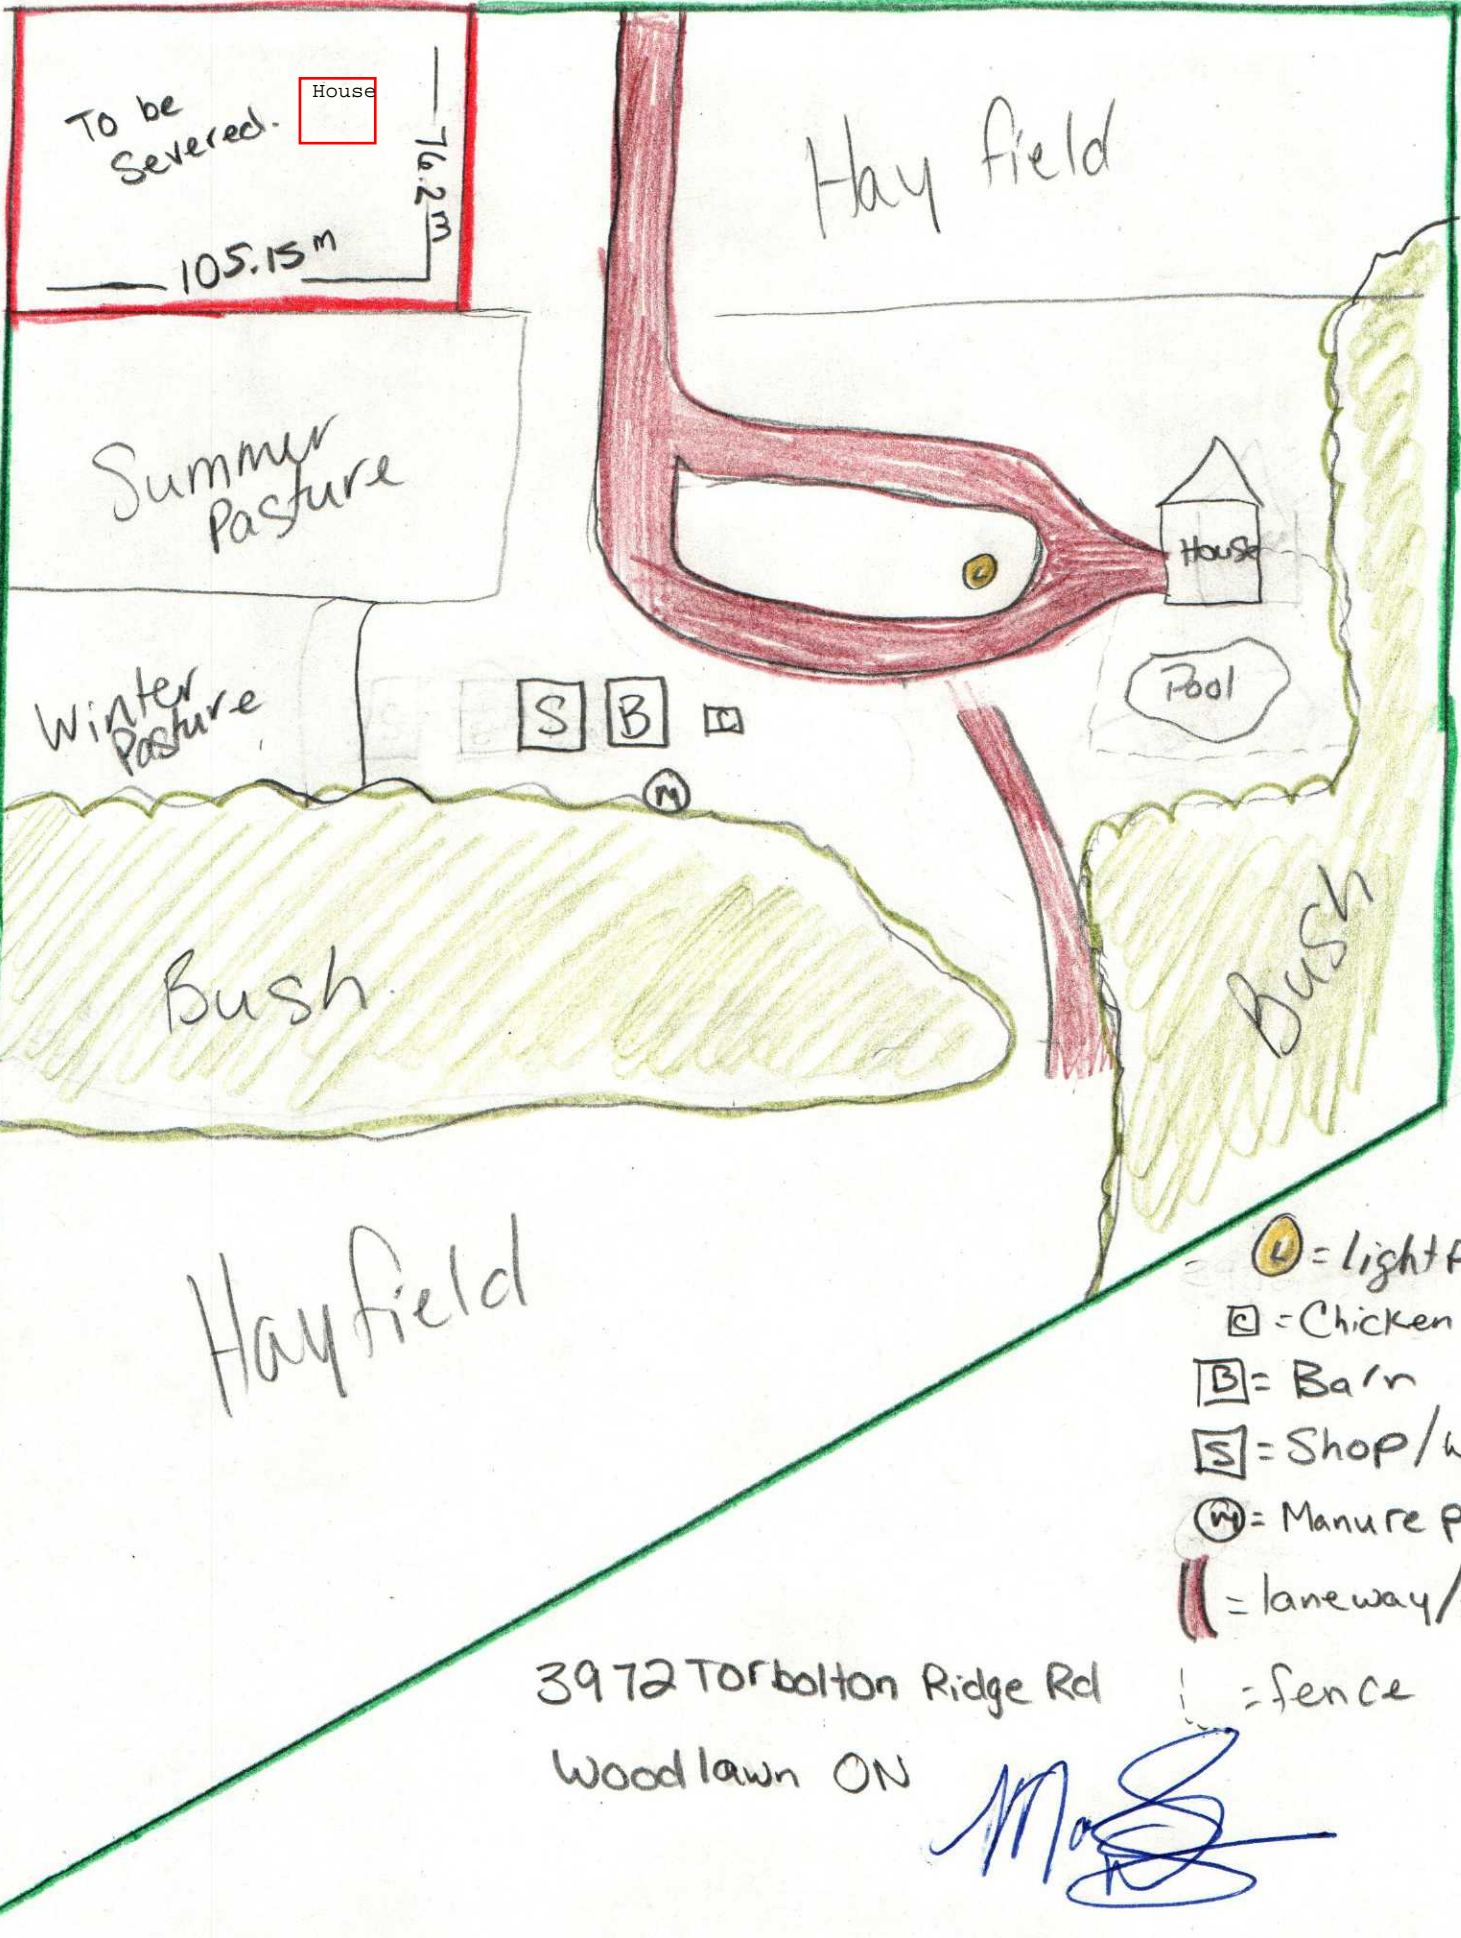 To be
Severed.
House
76.2m
105.15m
Hay field
Summer
Pasture
House
L
Pool
Winter
Pasture
S
B
C
M
Bush
Bush
Hayfield
L = light
C = Chicken
B = Barn
S = Shop/
M = Manure
= laneway/
= fence
3972 Torbolton Ridge Rd
Woodlawn ON